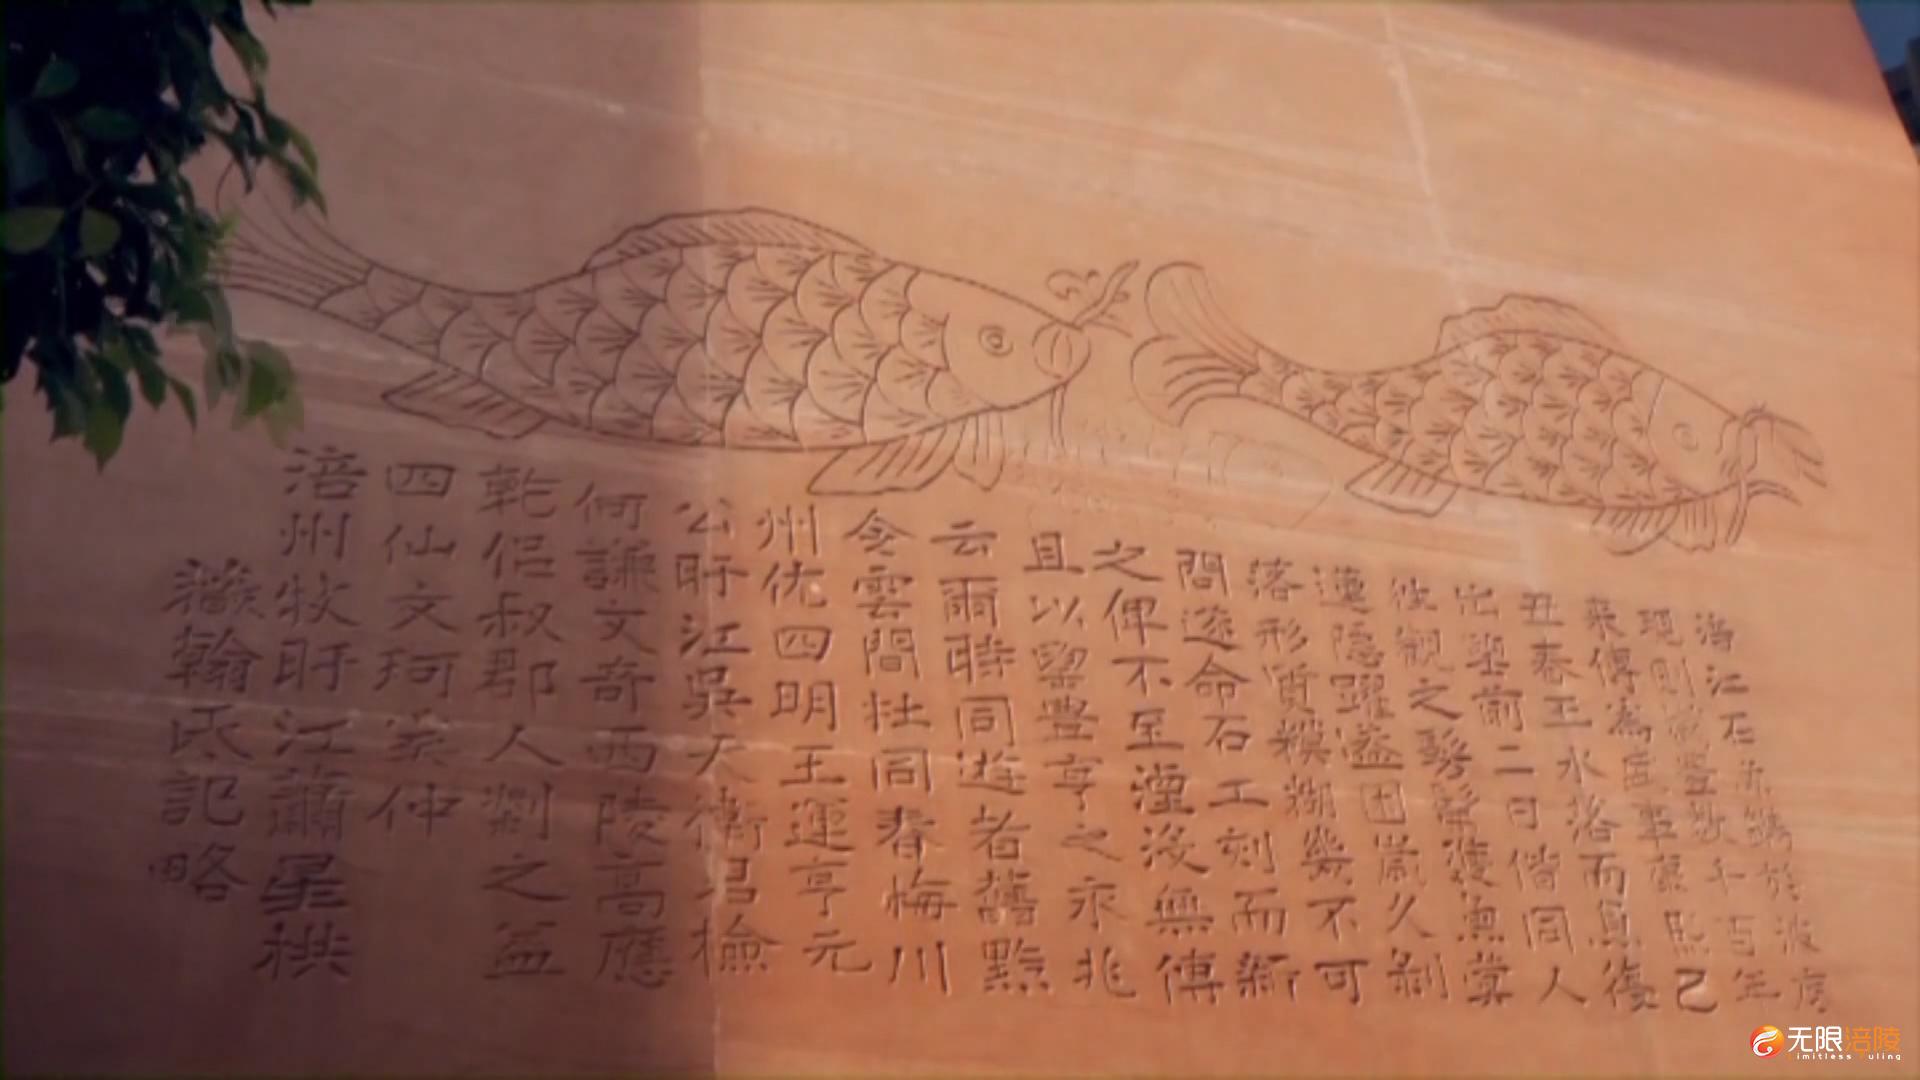 涪江石魚鐫於波底
現則歲豐數千百年
來傳為盛事康熙乙
丑春王水落而魚復
出望前二日偕同人
往觀之髣髴雙魚蓂
蓮隱躍蓋因歲久剝
落形質模糊幾不可
問遂命石工刻而新
之俾不至湮沒無傳
且以望豐亨之永兆
云爾時同遊者舊黔
令雲間杜同春梅川
州佐四明王運亨元
公盱江吳天衡檢
何謙文奇西陵高應
乾侶叔郡人劉之益
四仙文珂奚仲
涪州牧盱江蕭星拱
薇翰氏記略
无限涪陵